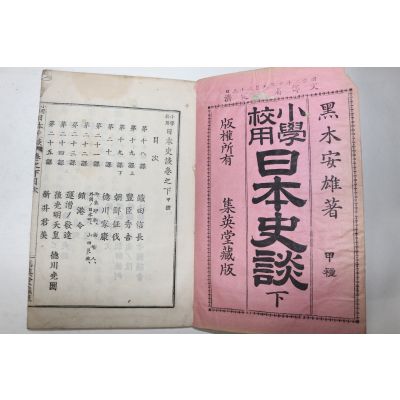 黑木安雄著 甲種
小學校用 日本史談 下
版權所有 集英堂藏版
小學校用 日本史談卷之下 甲種
目次
第十八課 織田信長
第十九課上 豐臣秀吉
第十九課下 朝鮮征伐
第二十課 德川家康
第二十一課 山田長政
第二十二課 鎖港令
第二十三課 ノ發達 德川光圀
第二十四課 光明天皇
第二十五課 新井君美